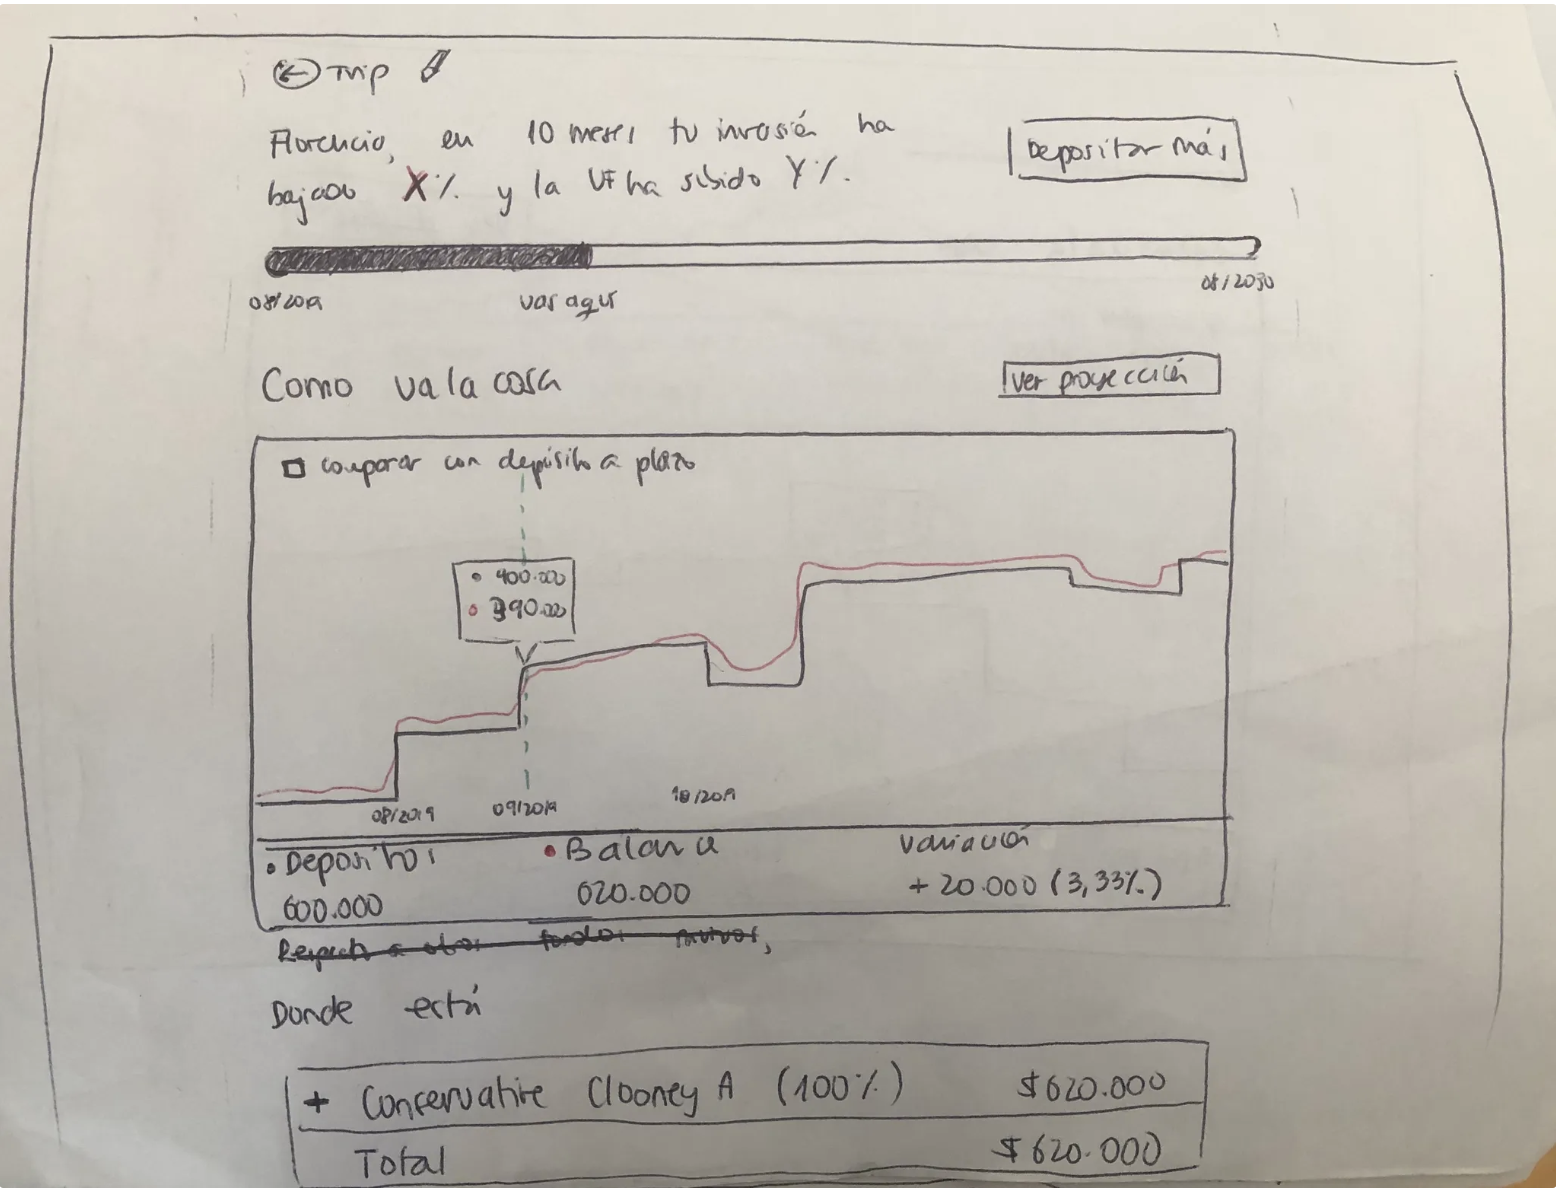 ← Trip
Florencio, en 10 meses tu inversión ha
bajado X% y la UF ha subido Y%.
Depositar más
08/2019
vas aquí
08/2030
Como va la cosa
Ver proyección
comparar con depósito a plazo
400.000
390.000
08/2019
09/2019
10/2019
Depositos
Balance
Variación
600.000
620.000
+ 20.000 (3,33%)
Respecto a otros fondos mutuos,
Donde está
+ Conservative Clooney A (100%) $620.000
Total $620.000